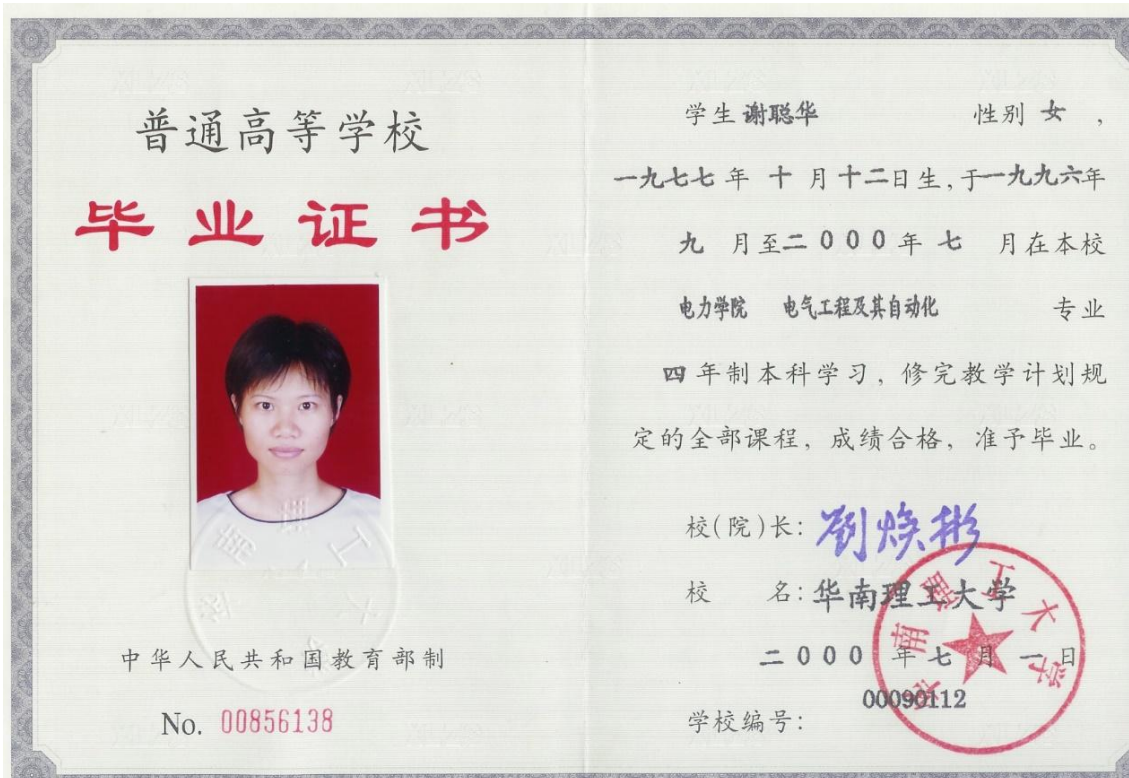 普通高等学校
毕业证书
中华人民共和国教育部制
No. 00856138
学生 谢聪华 性别 女，
一九七七年 十 月十二日生，于一九九六年
九 月至二000年 七 月在本校
电力学院 电气工程及其自动化 专业
四年制本科学习，修完教学计划规
定的全部课程，成绩合格，准予毕业。
校(院)长：劉焕彬
校 名：华南理工大学
二000 年七月 一日
学校编号：00090112
华南理工大学